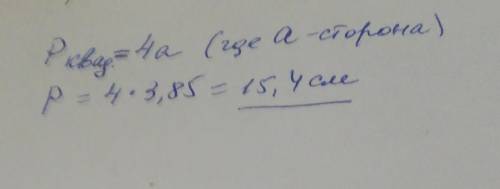 Pквад.=4a (где a - сторона)
P = 4 · 3,85 = 15,4см